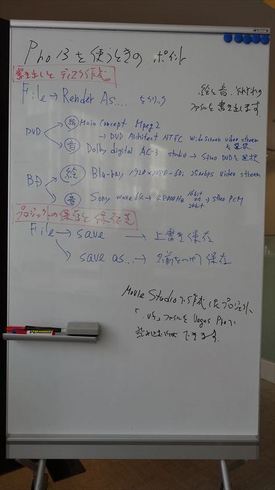 Pro 13 を使うときの ポイント
書き出しと ディスク作成
File → Render As... をクリック
絵と音、それぞれの
ファイルを書き出します。
DVD
絵 Main Concept Mpeg 2
→ DVD Architect NTSC Widescreen video stream
を選択
音 Dolby digital AC-3 studio → Stereo DVD を選択
BD
絵 Blu-ray 1920x1080-60i, 25Mbps video stream
音 Sony wave64 → 48000Hz 16bit or 24bit → stereo PCM
プロジェクトの保存と
File → save → 上書き保存
save as.. → 名前をつけて保存
Movie Studio で作成したプロジェクト
「.vf」ファイルを Vegas Pro で
読み込むことができます。